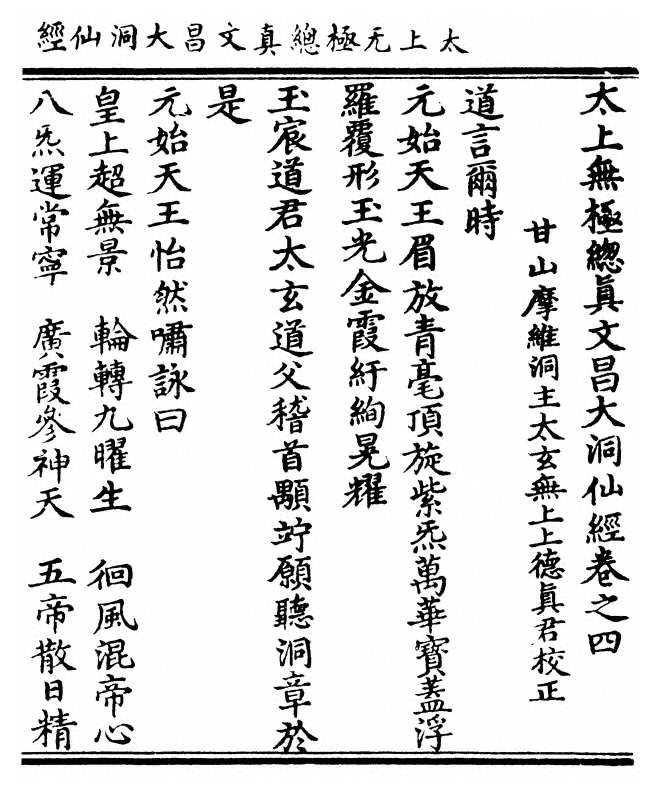 太上无極總真文昌大洞仙經
太上無極總眞文昌大洞仙經卷之四
甘山摩維洞主太玄無上上德眞君校正
道言爾時
元始天王眉放青毫頂旋紫炁萬華寶蓋浮
羅覆形玉光金霞紆絢晃耀
玉宸道君太玄道父稽首顒竚願聽洞章於
是
元始天王怡然嘯詠曰
皇上超無景 輪轉九曜生 徊風混帝心
八炁運常寧 廣霞參神天 五帝散日精